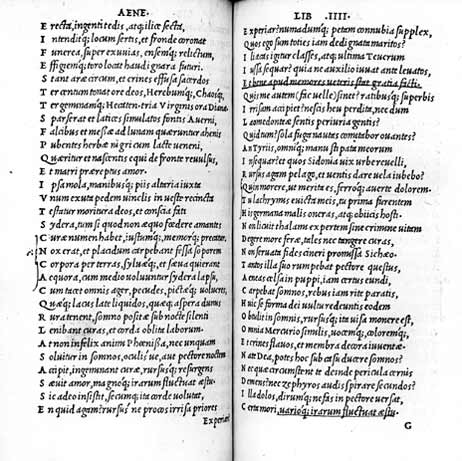 AENE·
E recta, ingenti tedis, atq; ilice secta,
I ntenditq; locum sertis, et fronde coronat
F unerea, super exuuias, ensemq; relictum,
E ffigiemq; toro locat haud ignara futuri.
S tant aræ circum, et crines effusa sacerdos
T er centum tonat ore deos, Herebumq; Chaosq;
T ergeminamq; Hecaten· tria Virginis ora Dianæ
S parserat et latices simulatos fontis Auerni,
F alcibus et messæ ad lunam quæruntur ahenis
P ubentes herbæ nigri cum lacte ueneni,
Q uæritur et nascentis equi de fronte reuulsus,
E t matri præreptus amor·
I psa mola, manibusq; piis altaria iuxta
V num exuta pedem uinclis in ueste recincta
T estatur moritura deos, et conscia fati
S ydera, tum si quod non æquo fœdere amantes
C uræ numen habet, iustumq; memorq; precatur.
N ox erat, et placidum carpebant fessa soporem
C orpora per terras, syluæq; et sæua quierant
A equora, cum medio uoluuntur sydera lapsu,
C um tacet omnis ager, pecudes, pictæq; uolucres,
Q uæq; lacus late liquidos, quæq; aspera dumis
R ura tenent, somno positæ sub nocte silenti
L enibant curas, et corda oblita laborum·
A t non infelix animi Phœnissa, nec unquam
S oluitur in somnos, oculis ue, aut pectore noctem
A ccipit, ingeminant curæ, rursusq; resurgens
S æuit amor, magnoq; irarum fluctuat æstu·
S ic adeo insistit, secumq; ita corde uolutat,
E n quid agam? rursus ne procos irrisa priores
Experiar
LIB ·IIII·
E xperiar? numadumq; petam connubia supplex,
Q uos ego sum toties iam dedignata maritos?
I liacas igitur classes, atq; ultima Teucrum
I ussa sequar? quia ne auxilio iuuat ante leuatos,
E t bene apud memores ueteris stat gratia facti.
Q uis me autem (fac uelle) sinet? ratibusq; superbis
I rrisam accipiet? nescis heu perdita, nec dum
L aomedonteæ sentis periuria gentis?
Q uid tum? sola fuga nautas comitabor ouantes?
A n Tyriis, omniq; manu stipata meorum
I nsequar? et quos Sidonia uix urbe reuelli,
R ursus agam pelago, et uentis dare uela iubebo?
Q uin morere, ut merita es, ferroq; auerte dolorem·
T u lachrymis euicta meis, tu prima furentem
H is germana malis oneras, atq; obiicis hosti·
N on licuit thalami expertem sine crimine uitam
D egere more feræ, tales nec tangere curas,
N on seruata fides cineri promissa Sichæo·
T antos illa suo rumpebat pectore questus,
A eneas celsa in puppi, iam certus eundi,
C arpebat somnos, rebus iam rite paratis,
H uic se forma dei uultu redeuntis eodem
O btulit in somnis, rursusq; ita uisa monere est,
O mnia Mercurio similis, uocemq; coloremq;
E t crines flauos, et membra decora iuuentæ·
N ate Dea, potes hoc sub casu ducere somnos?
N ec quæ circumstent te deinde pericula cernis
D emens? nec zephyros audis spirare secundos?
I lla dolos, dirumq; nefas in pectore uersat,
C erta mori, uarioq; irarum fluctuat æstu·
G